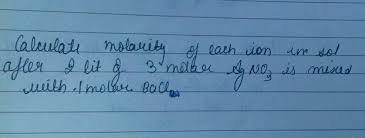 Calculate molarity of each ion in sol
after 2 lit of 3 molar AgNO3 is mixed
with 1 molar BaCl